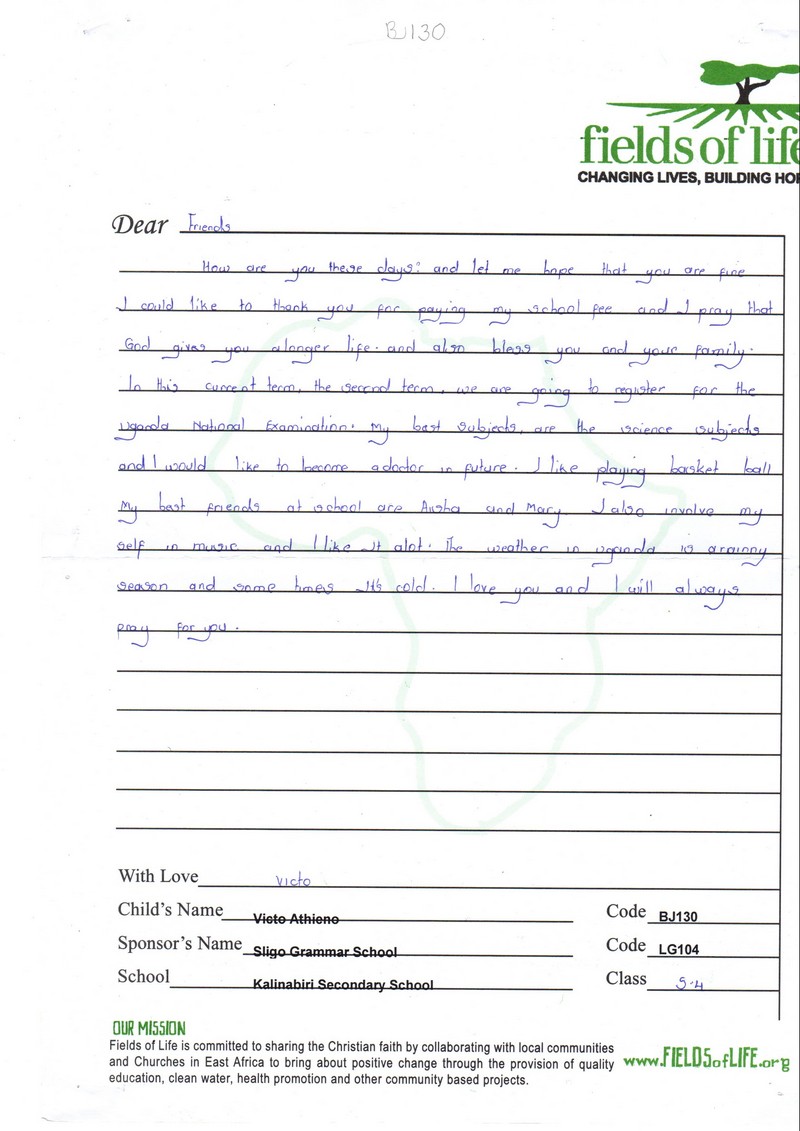 BJ130
fields of life
CHANGING LIVES, BUILDING HO
Dear Friends
How are you these days? and let me hope that you are fine
I could like to thank you for paying my school fee and I pray that
God gives you alonger life. and also bless you and your family.
In this current term, the second term, we are going to register for the
Uganda National Examination. My best subjects, are the science subjects
and I would like to become adoctor in future. I like playing basket ball
My best friends at school are Aisha and Mary. I also involve my
self in music and I like it alot. The weather in Uganda is arainny
season and some times its cold. I love you and I will always
pray for you.
With Love Victo
Child's Name Victo Athieno Code BJ130
Sponsor's Name Sligo Grammar School Code LG104
School Kalinabiri Secondary School Class S.4
OUR MISSION
Fields of Life is committed to sharing the Christian faith by collaborating with local communities
and Churches in East Africa to bring about positive change through the provision of quality
education, clean water, health promotion and other community based projects.
www.FIELDSofLIFE.org